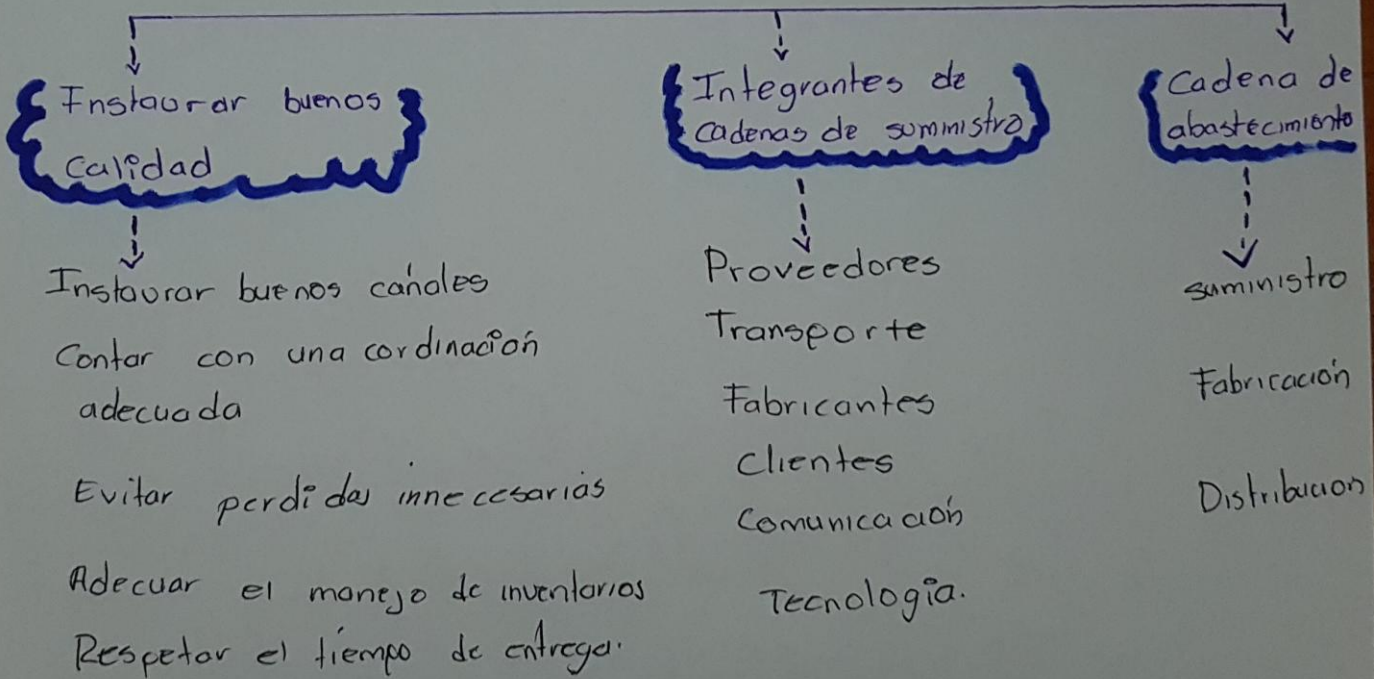 Instaurar buenos
calidad
Instaurar buenos canales
Contar con una cordinación
adecuada
Evitar perdidas innecesarias
Adecuar el manejo de inventarios
Respetar el tiempo de entrega.
Integrantes de
cadenas de suministro
Proveedores
Transporte
Fabricantes
Clientes
Comunicación
Tecnologia.
Cadena de
abastecimiento
suministro
Fabricación
Distribucion